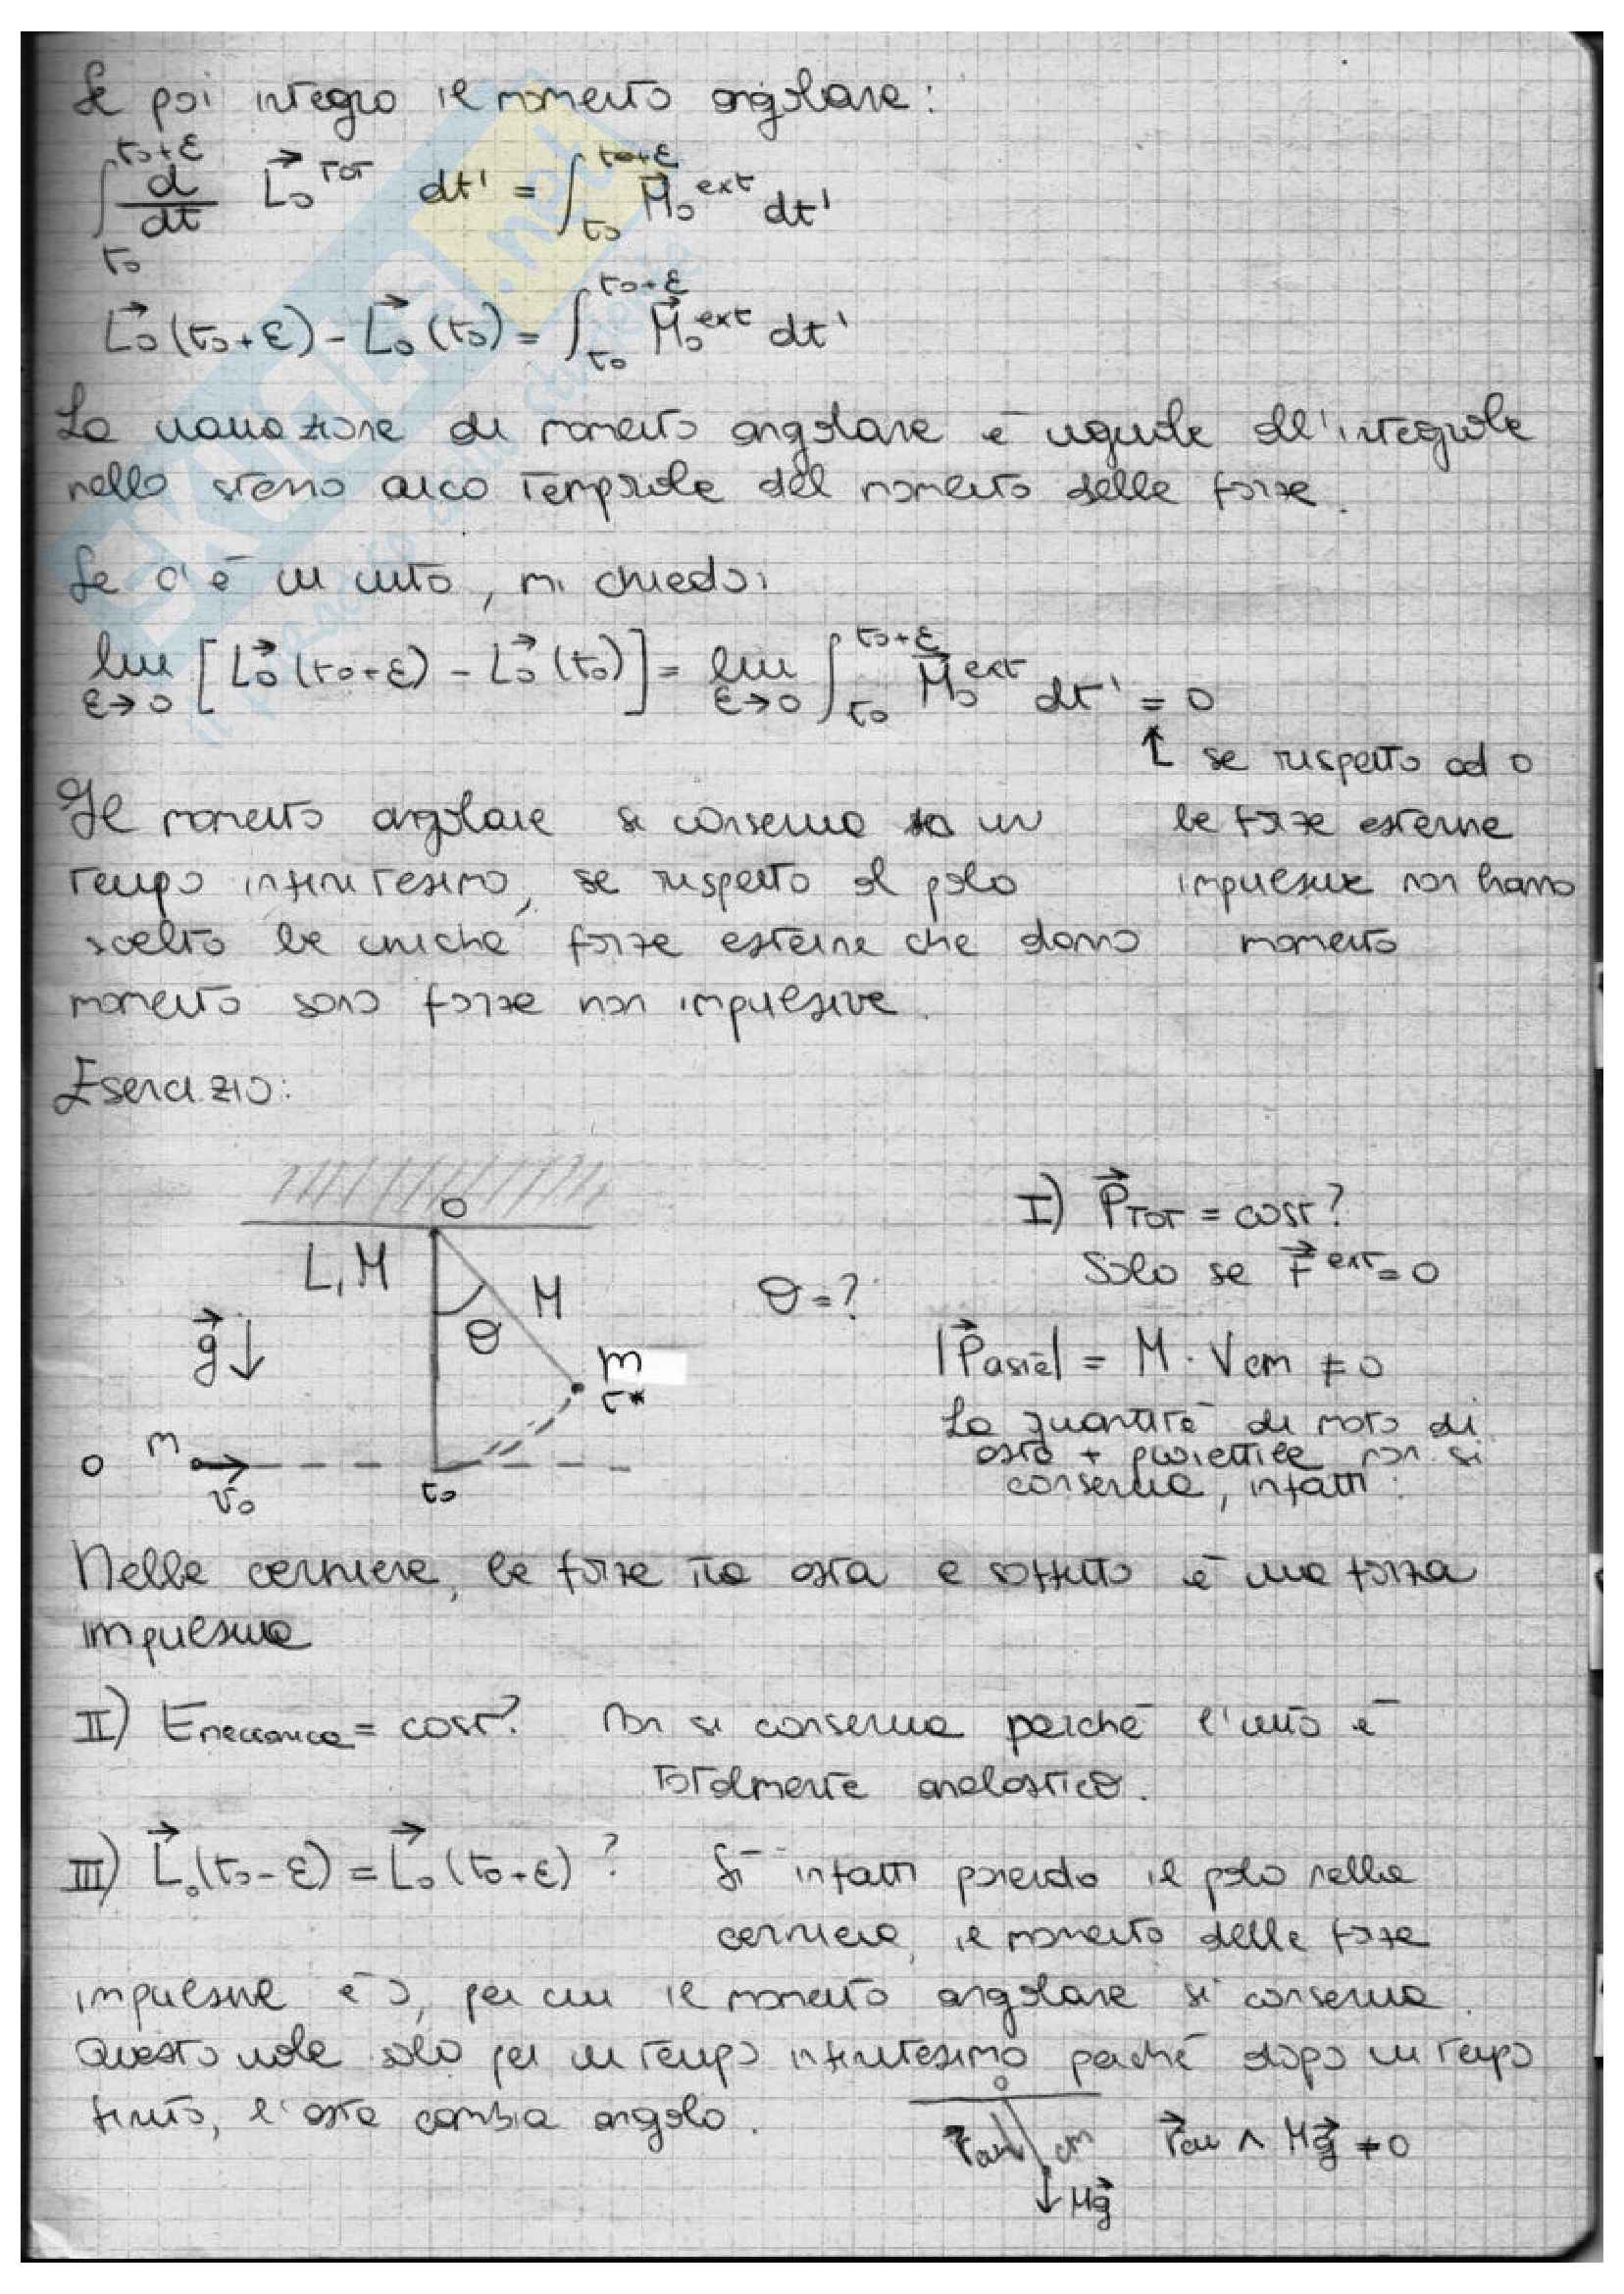 Se poi integro il momento angolare:
∫_{t0}^{t0+ε} d/dt L⃗o^TOT dt' = ∫_{t0}^{t0+ε} M⃗o^ext dt'
L⃗o(t0+ε) - L⃗o(t0) = ∫_{t0}^{t0+ε} M⃗o^ext dt'
La variazione di momento angolare è uguale all'integrale
nello stesso arco temporale del momento delle forze.
Se c'è un urto, mi chiedo:
lim_{ε→0} [L⃗o(t0+ε) - L⃗o(t0)] = lim_{ε→0} ∫_{t0}^{t0+ε} M⃗o^ext dt' = 0
↑ se rispetto ad O
le forze esterne
impulsive non hanno
momento
Il momento angolare si conserva in un
tempo infinitesimo, se rispetto al polo
scelto le uniche forze esterne che danno
momento sono forze non impulsive.
Esercizio:
O
L, M
M
θ
g⃗ ↓
m
t*
O m
v0
t0
θ = ?
I) P⃗TOT = cost?
Solo se F⃗^ext = 0
|P⃗asta| = M · Vcm ≠ 0
La quantità di moto di
asta + proiettile non si
conserva, infatti:
Nelle cerniere, le forze tra asta e soffitto è una forza
impulsiva
II) Emeccanica = cost? Non si conserva perché l'urto è
totalmente anelastico.
III) L⃗o(t0-ε) = L⃗o(t0+ε)? Sì infatti ponendo il polo nella
cerniera, il momento delle forze
impulsive è 0, per cui il momento angolare si conserva.
Questo vale solo per un tempo infinitesimo perché dopo un tempo
finito, l'asta cambia angolo.
O
r⃗cm cm
↓ Mg⃗
r⃗cm ∧ Mg⃗ ≠ 0
SKUOLA.net